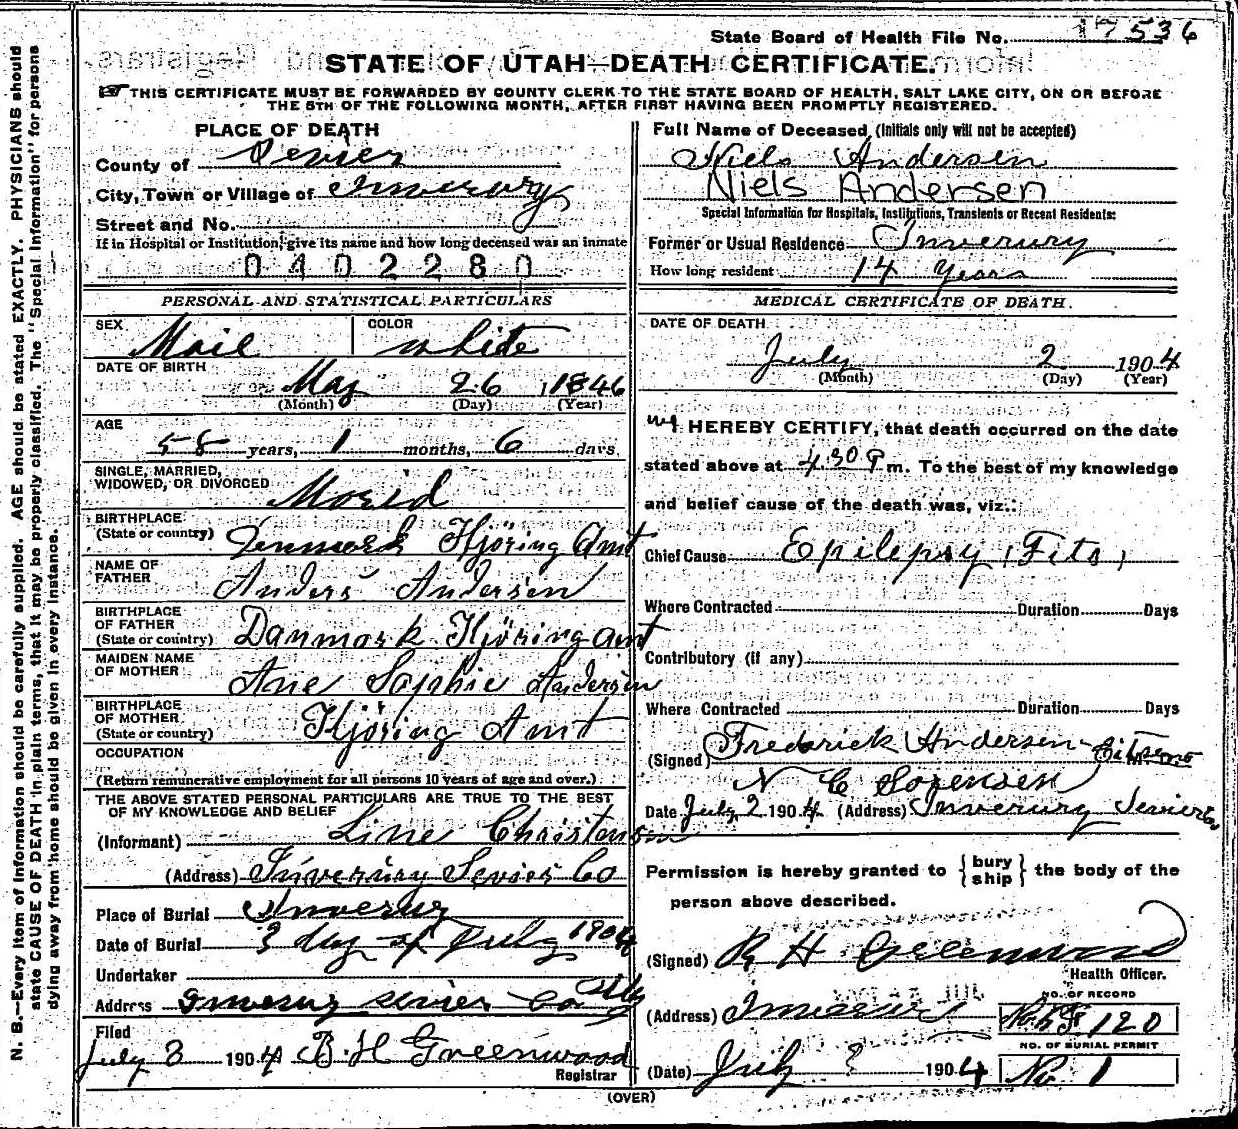 State Board of Health File No. 17536
STATE OF UTAH—DEATH CERTIFICATE.
THIS CERTIFICATE MUST BE FORWARDED BY COUNTY CLERK TO THE STATE BOARD OF HEALTH, SALT LAKE CITY, ON OR BEFORE
THE 5TH OF THE FOLLOWING MONTH, AFTER FIRST HAVING BEEN PROMPTLY REGISTERED.
PLACE OF DEATH
County of Sevier
City, Town or Village of Inverury
Street and No.
If in Hospital or Institution, give its name and how long deceased was an inmate
0402280
PERSONAL AND STATISTICAL PARTICULARS
SEX COLOR
Male white
DATE OF BIRTH
May 26, 1846
(Month) (Day) (Year)
AGE
58 years, 1 months, 6 days
SINGLE, MARRIED,
WIDOWED, OR DIVORCED Moried
BIRTHPLACE
(State or country) Denmark Hjöring Amt
NAME OF
FATHER Anders Andersen
BIRTHPLACE
OF FATHER
(State or country) Danmark Hjöring Amt
MAIDEN NAME
OF MOTHER Ane Sophie Andersen
BIRTHPLACE
OF MOTHER
(State or country) Hjöring Amt
OCCUPATION
(Return remunerative employment for all persons 10 years of age and over.)
THE ABOVE STATED PERSONAL PARTICULARS ARE TRUE TO THE BEST
OF MY KNOWLEDGE AND BELIEF
(Informant) Line Christensen
(Address) Inverury Sevier Co
Place of Burial Inverury
Date of Burial 3 day of July 1904
Undertaker
Address Inverury Sevier Co
Filed
July 3 1904 R H Greenwood
Registrar
Full Name of Deceased, (Initials only will not be accepted)
Niels Andersen
Niels Andersen
Special Information for Hospitals, Institutions, Transients or Recent Residents:
Former or Usual Residence Inverury
How long resident 14 Years
MEDICAL CERTIFICATE OF DEATH.
DATE OF DEATH
July 2 1904
(Month) (Day) (Year)
HEREBY CERTIFY, that death occurred on the date
stated above at 4.30 P m. To the best of my knowledge
and belief cause of the death was, viz.:
Chief Cause Epilepsy (Fits)
Where Contracted Duration Days
Contributory (if any)
Where Contracted Duration Days
(Signed) Fredrick Andersen
N C Sorensen
Date July 2 1904 (Address) Inverury Sevier Co
Permission is hereby granted to { bury ship } the body of the
person above described.
(Signed) R H Greenwood
Health Officer.
(Address) Inverury
NO. OF RECORD
120
NO. OF BURIAL PERMIT
No 1
(Date) July 3 1904
(OVER)
N. B.—Every item of information should be carefully supplied. AGE should be stated EXACTLY. PHYSICIANS should
state CAUSE OF DEATH in plain terms, that it may be properly classified. The "Special Information" for persons
dying away from home should be given in every instance.